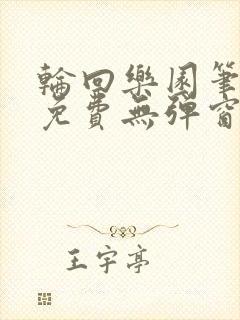 輪回樂園筆
免費無彈窗
王宇亭